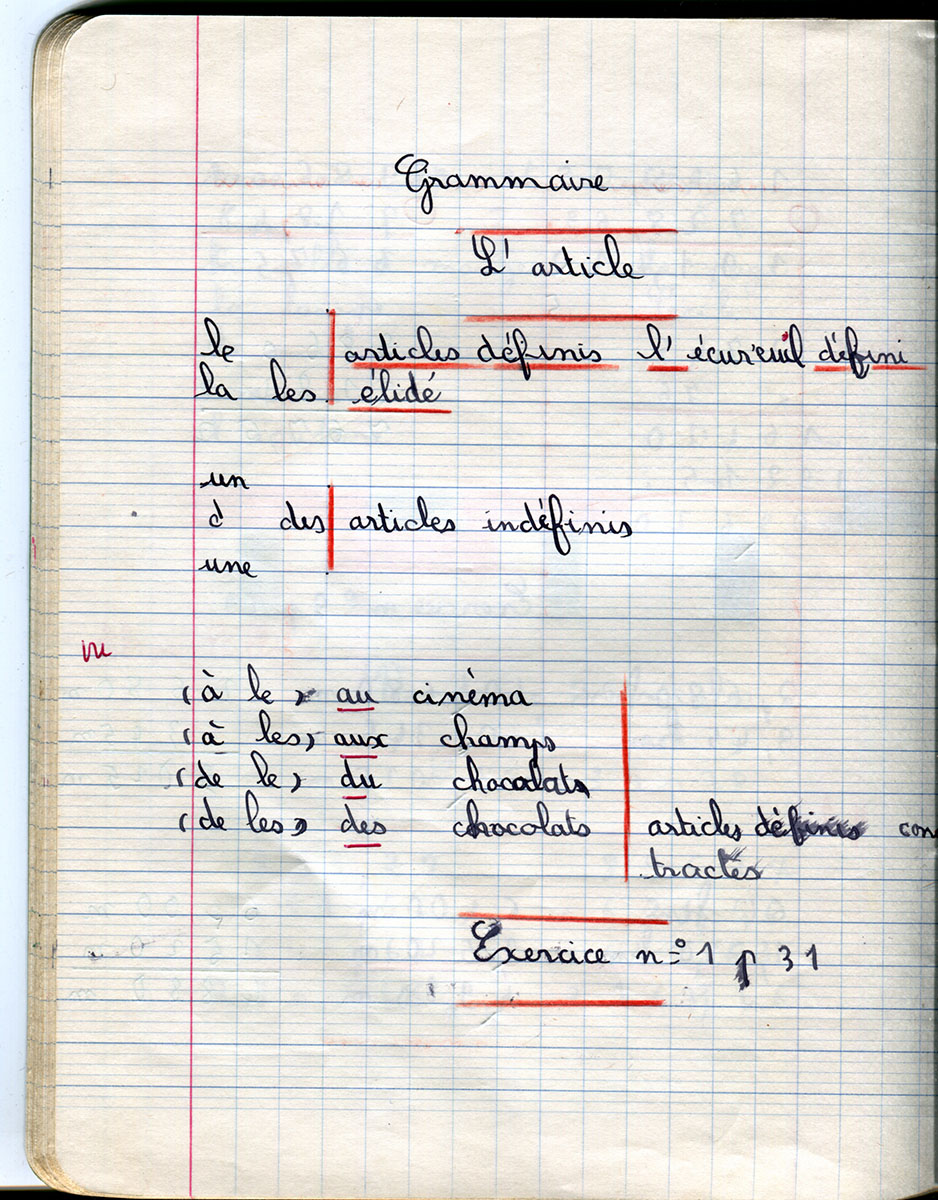 Grammaire
L'article
le articles définis l'écureuil défini
la les élidé
un
d des articles indéfinis
une
vu
(à le) au cinéma
(à les) aux champs
(de le) du chocolats
(de les) des chocolats articles définis con
tractés
Exercice n° 1 p 31